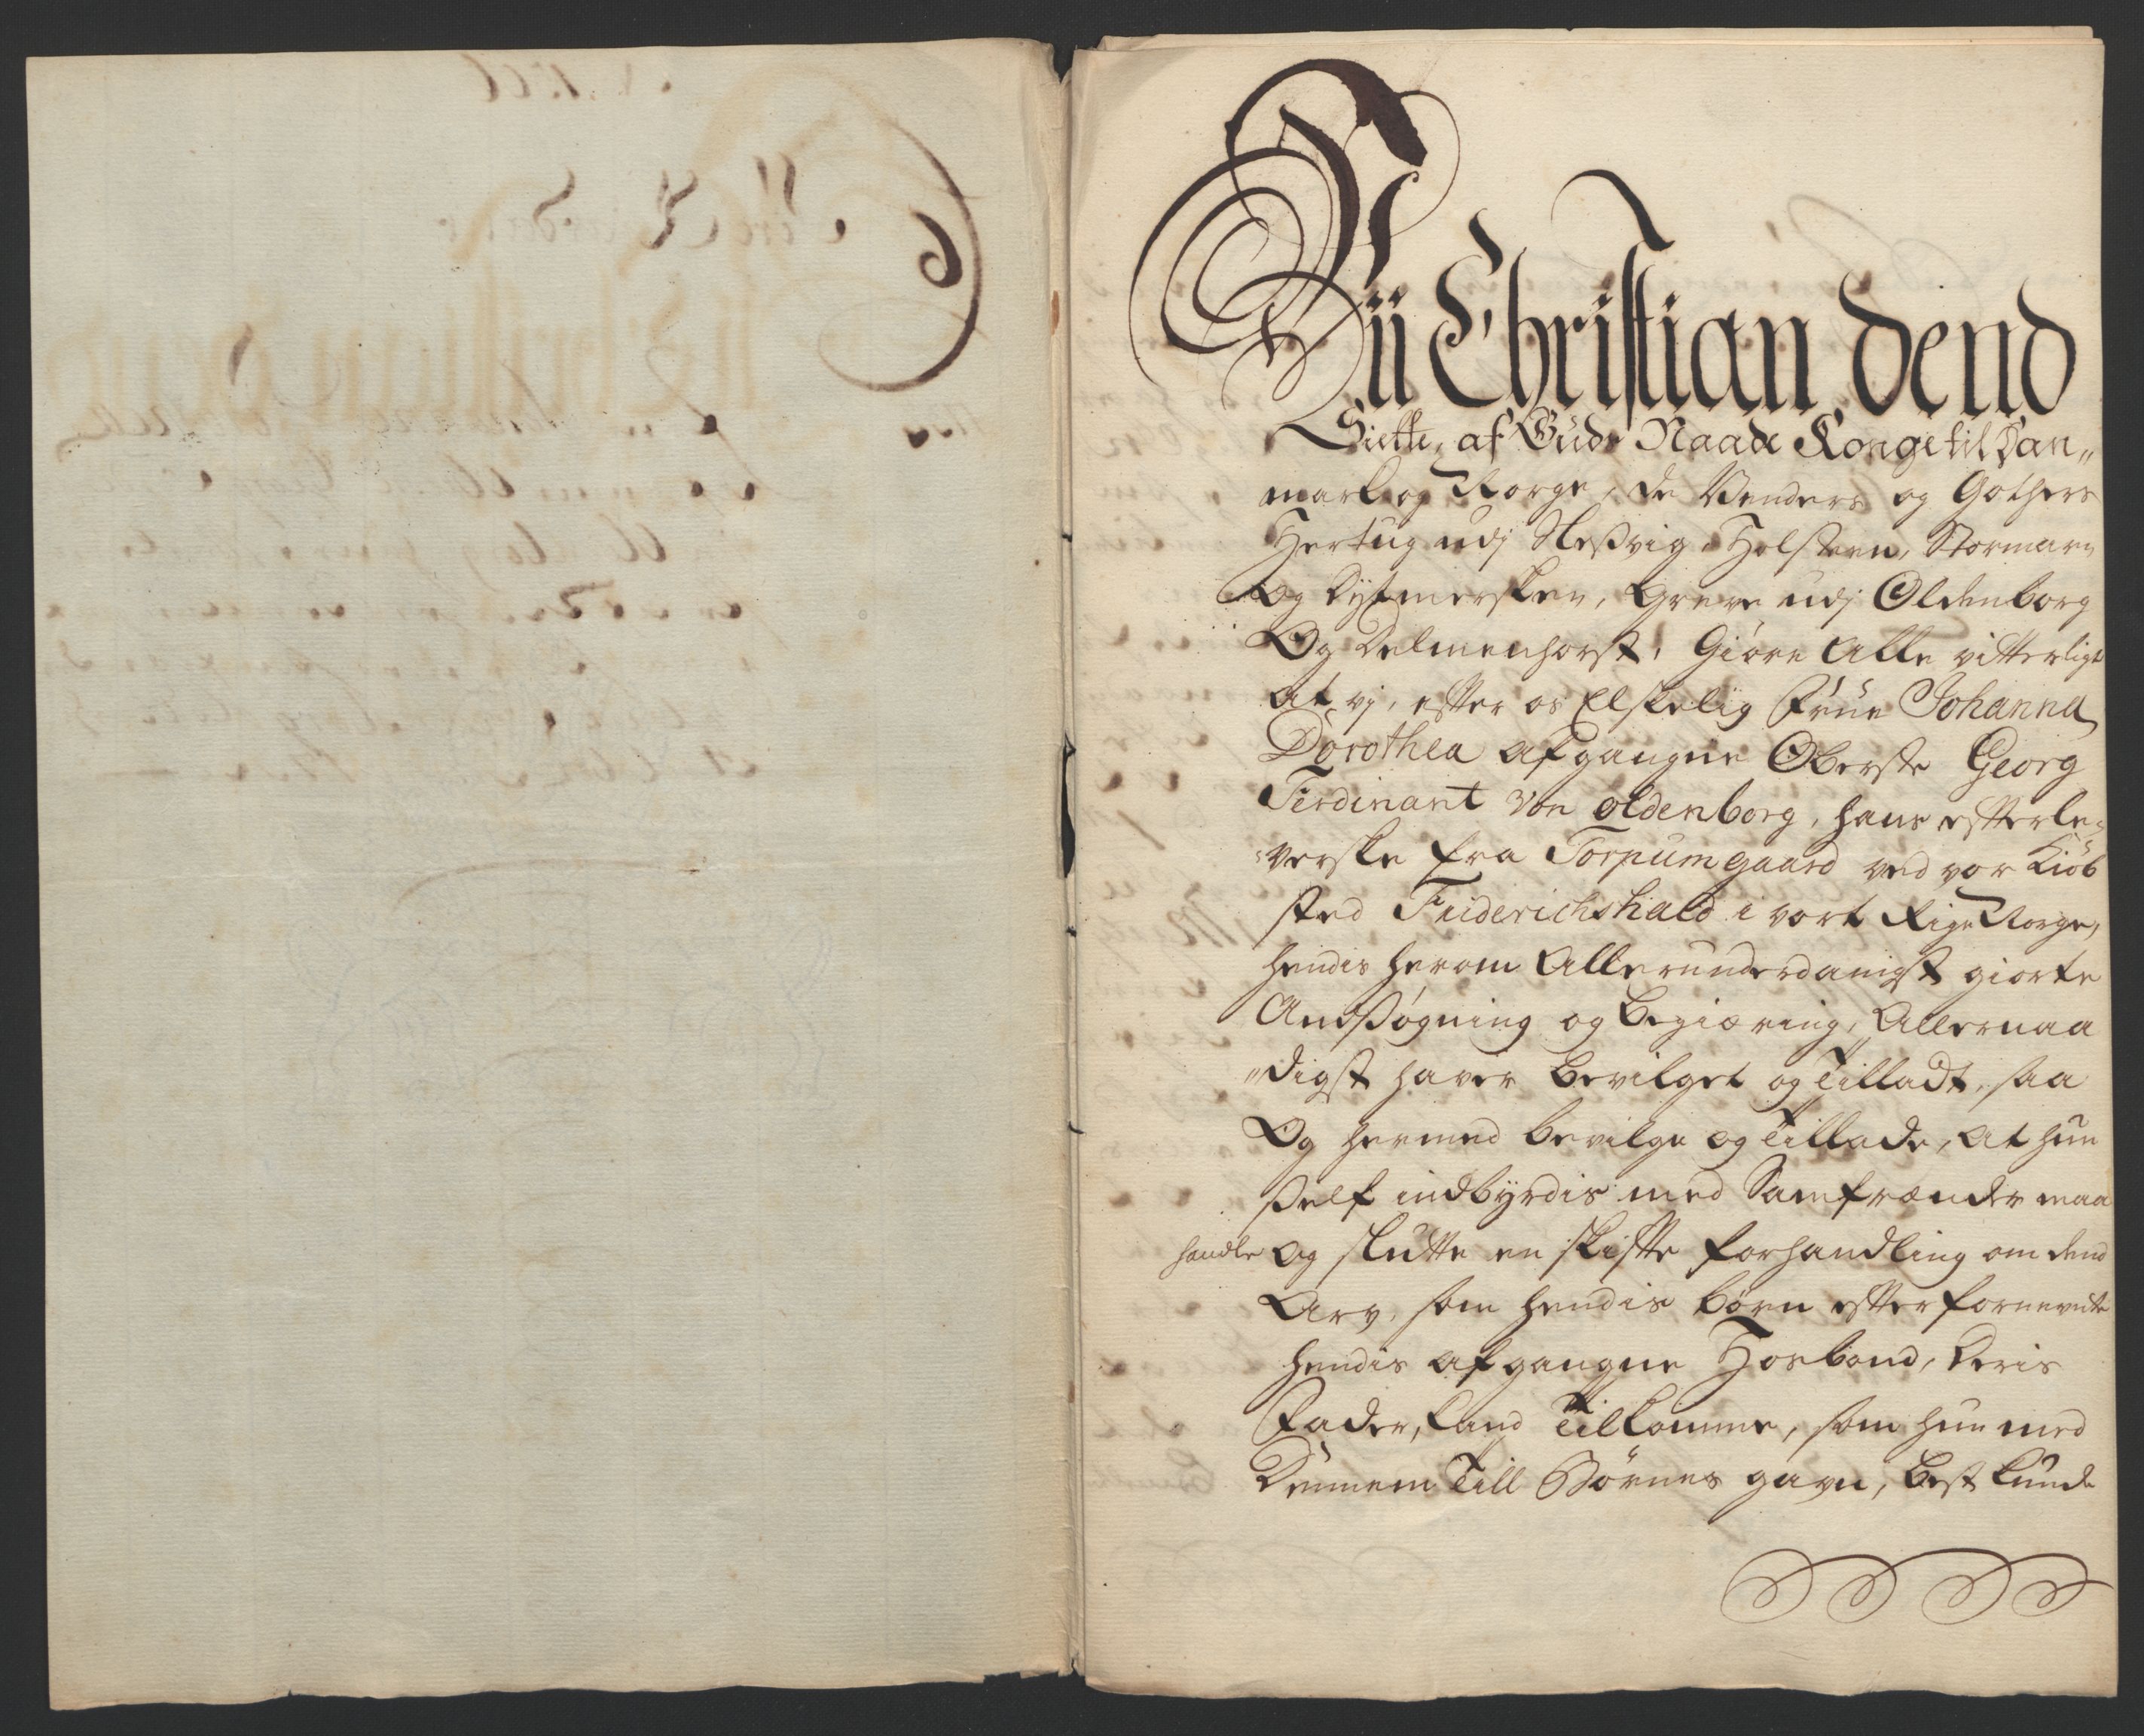 Vii Christian dend
Siette, af Guds Naade Konge til Dan„
mark og Norge, de Venders og Gothers
Hertug udj Slesvig, Holsteen, Stormarn
Og Dytmersken, Greve udj Oldenborg
Og Delmenhorst, Giöre Alle vitterligt
at vj, efter os Elskelig Frue Johanna
Dorothea afgangne Oberste Georg
Ferdinant von Oldenborg, hans efterle„
verske fra Torpumgaard ved vor Kiöb
sted Friderichshald i vort Rige Norge,
hendis herom Allerunderdanigst giorte
Andsøgning og begiæring, Allernaa
„digst haver bevilget og Tilladt, saa
Og hermed bevilge og Tillade, at hun
self indbyrdis med Samfrænder maa
handle og slutte en skifte forhandling om dend
Arv, som hendis børn efter fornevnte
hendis afgangne Hosbond, deris
Fader, kand Tilkomme, som hun med
Dennem Till Börnes gavn, best kunde